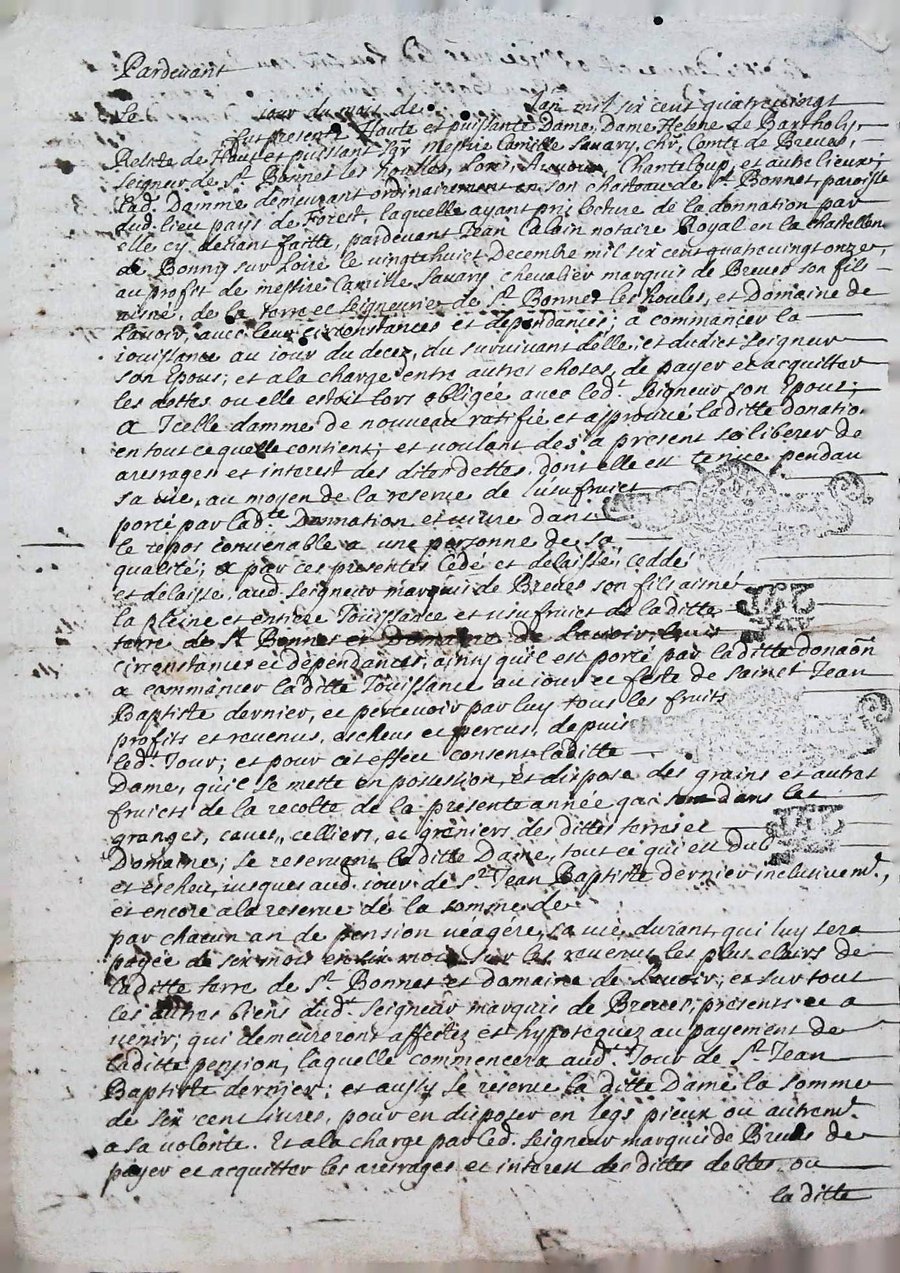 Pardevant
Le jour du mois de lan mil six cent quatrevingt
fut presente Haute et puissante Dame, Dame Helene de Bartholy,
Relicte de Haut et puissant sgr messire Camille Savary, chr, Comte de Breves,
seigneur de st. Bonnet les houlles, Chanteloup, et autre lieux;
lad. Damme demeurant ordinairement en son chasteau de st. Bonnet, paroisse
dud. lieu pays de Forest, laquelle ayant pris lecture de la donnation par
elle cy devant faitte, pardevant Jean lalain notaire Royal en la chastellen
de Bonny sur Loire le vingthuict Decembre mil six cent quatrevingt onze,
au profit de messire Camille Savary chevalier marquis de Breves son fils
aisné, de la terre et seigneurie de st. Bonnet les houles, et Domaine de
Lavoir, avec leur circonstances et dependances; a commancer la
jouissance au jour du decez, du survivant delle, et dudict seigneur
son Epoux; et a la charge entre autres choses, de payer et acquitter
les dettes ou elle estoit lors obligée avec led. seigneur son Epoux;
a Icelle damme de nouveau ratifié et approuvé laditte donatio.
en tout ce quelle contient; et voulant des a present se liberer de
arerages et interest des dites dettes, dont elle est tenüe pendan
sa vie, au moyen de la reserve de lusufruict
porté par lad.te Donnation et vivre dans
le repos convenable a une personne de sa
qualité; a par ces presentes cedé et delaissé, cedde
et delaisse, aud. seigneur marquis de Breves son fils aisné
la pleine et entiere Jouissance et usufruict de laditte
terre de st. Bonnet et Domaine de Lavoir, leurs
circonstances et dependances, ainsy qu'il est porté par laditte donaon
a commancer laditte Jouissance au jour et feste de sainct Jean
Baptiste dernier, et percevoir par luy tous les fruits
profits et revenus, escheus et percus, depuis
led.t Jour; et pour cet effect consent laditte
Dame, qu'il se mette en possession, et dispose des grains et autres
fruicts de la recolte de la presente année qui sont dans les
granges, caves, celliers, et greniers des dittes terres et
Domaine; se reservant laditte Dame, tout ce qui est dub
et escheu, jusques aud. jour de st. Jean Baptiste dernier inclusivem.t,
et encore a la reserve de la somme de
par chacun an de pension viagére, sa vie durant, qui luy sera
payée de six mois en six mois sur les revenus les plus clairs de
laditte terre de st. Bonnet et domaine de Lavoir, et sur tout
les autres biens dud.t seigneur marquis de Breves, presents et a
venir; qui demeureront affectez et hypotequez au payement de
laditte pension, laquelle commencera aud.t Jour de st. Jean
Baptiste dernier; et aussy se reserve la ditte Dame la somme
de six cent livres, pour en disposer en legs pieux ou autrem.t
a sa volonte. Et a la charge par led. seigneur marquis de Breves de
payer et acquitter les arerages et interest des dittes debtes, ou
la ditte